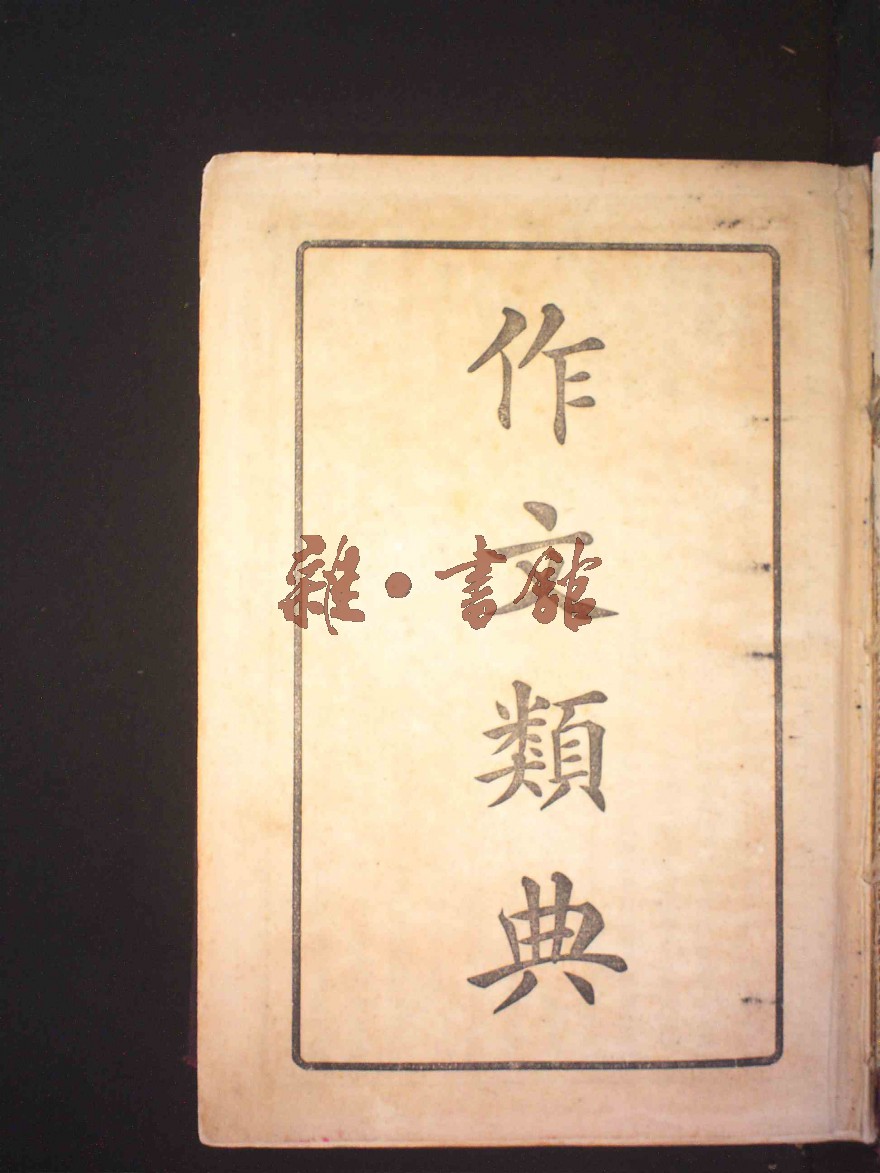 作文類典
雜·書館